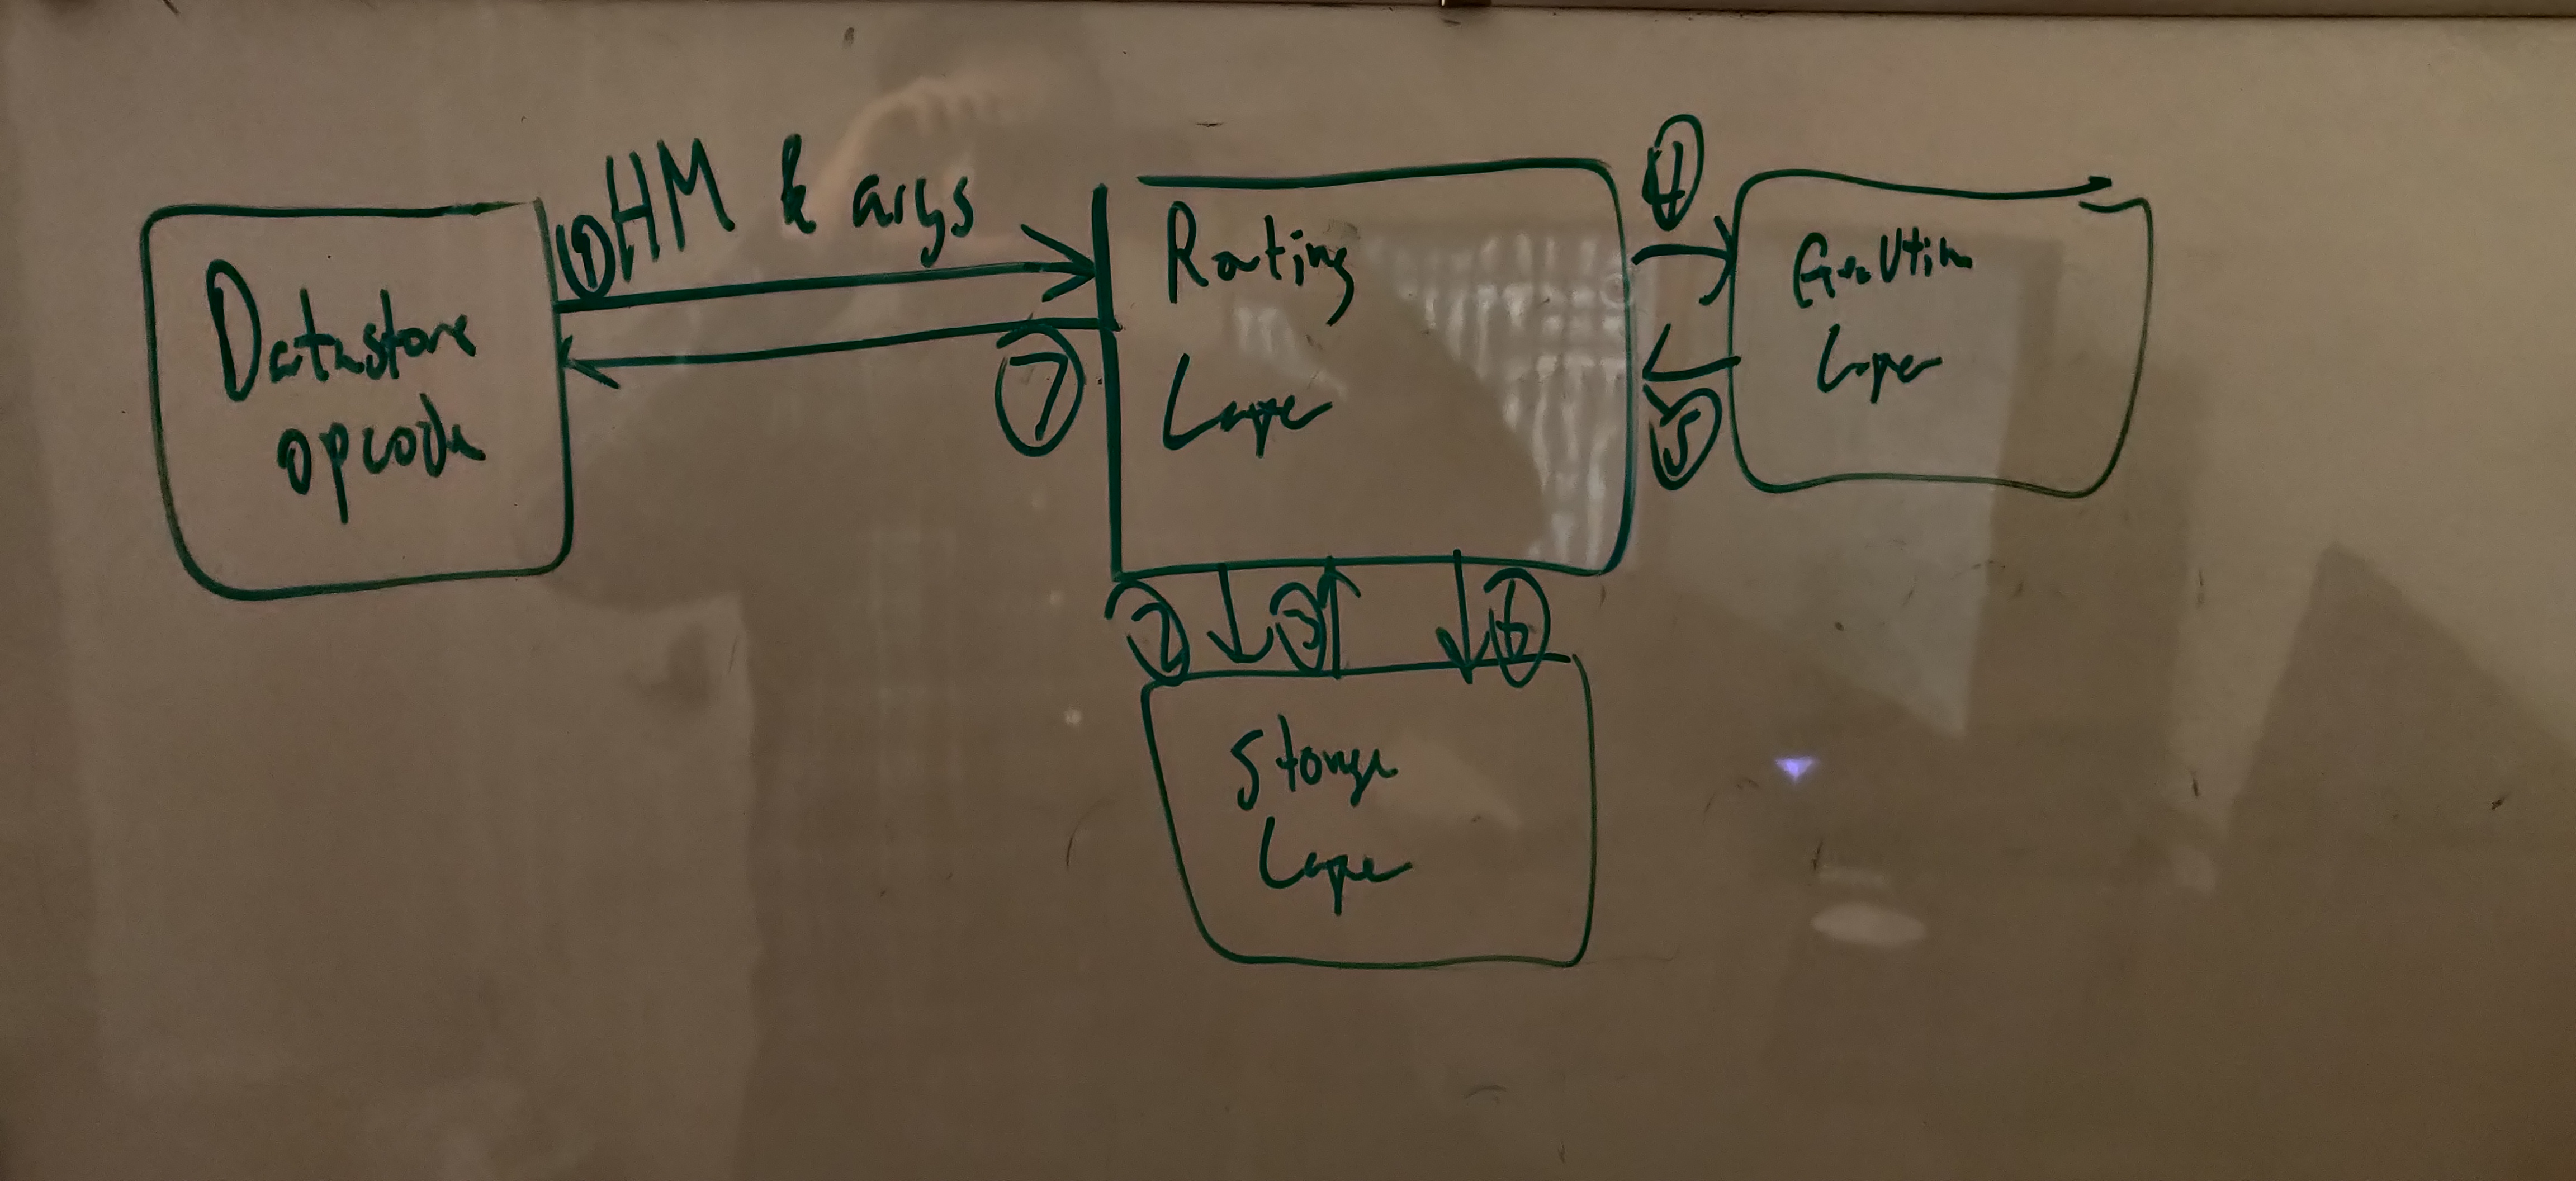 Datastore
opcode
① HM & args
⑦
Routing
Layer
④
⑤
Execution
Layer
② ③ ⑥
Storage
Layer